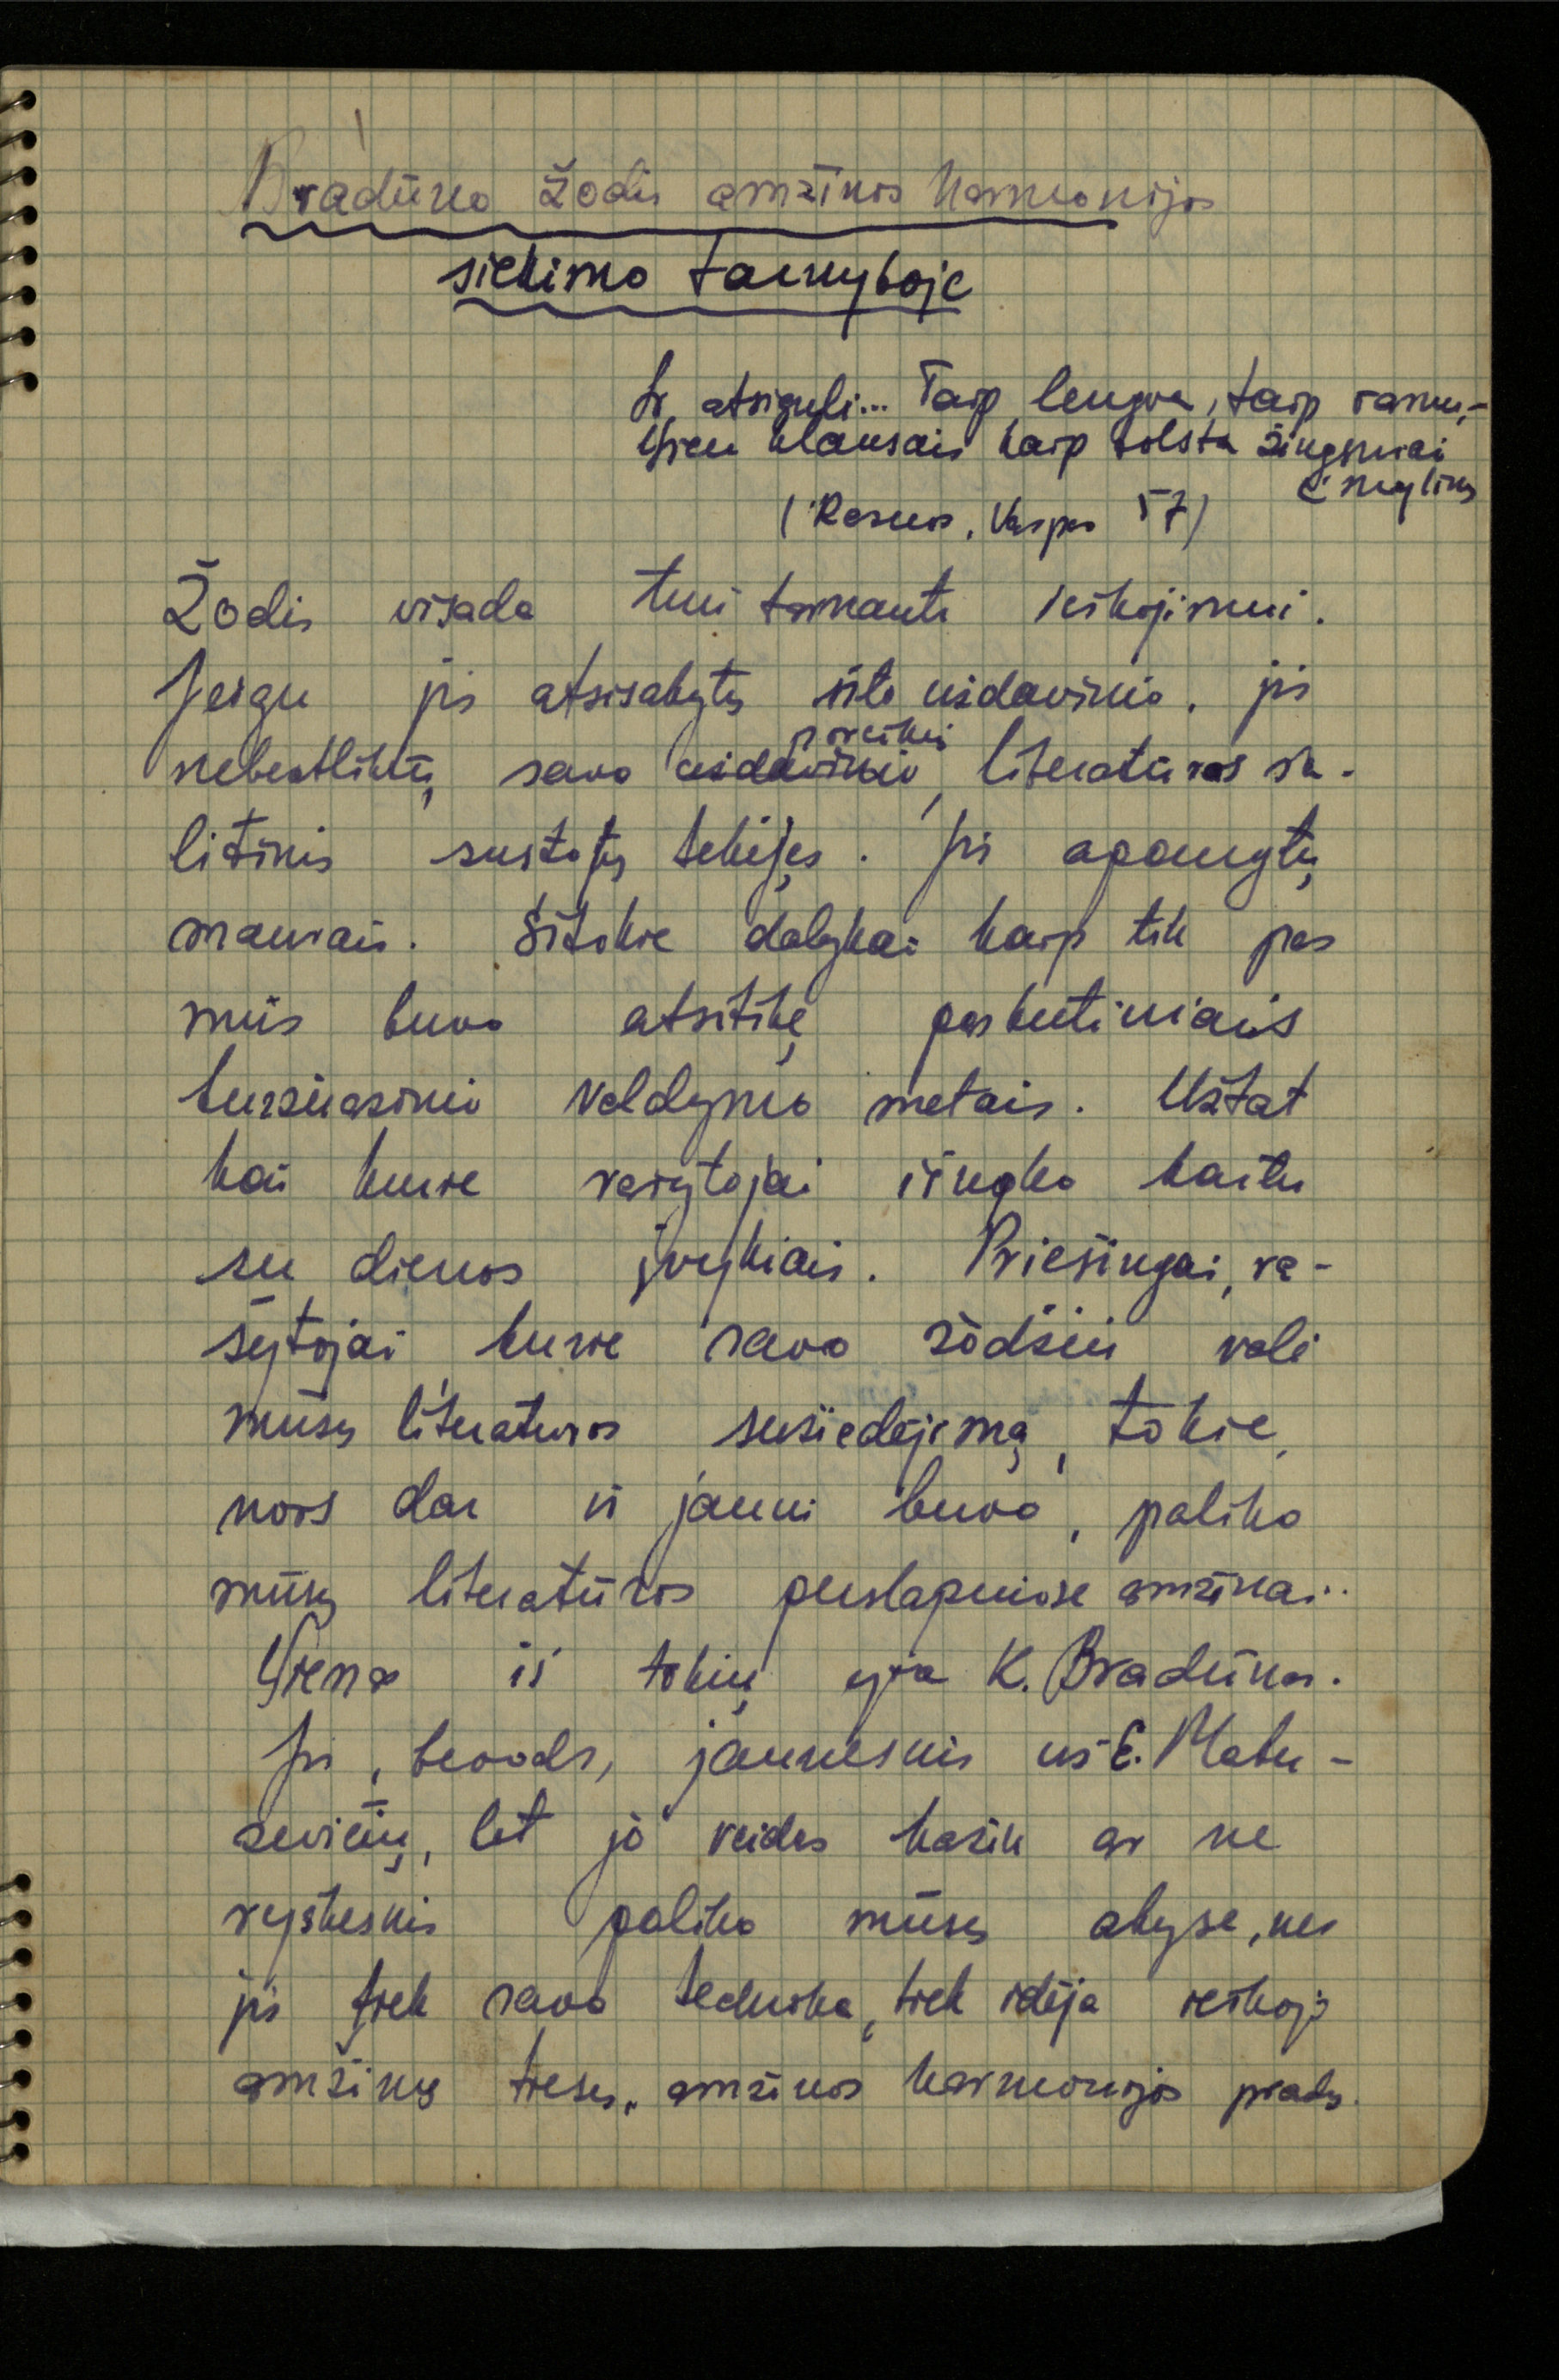 Bradūno žodis amžinos harmonijos
siekimo tarnyboje
Ir atsiguli... Taip lengva, taip ramu,–
Vien klausais kaip tolsta žingsniai
mylimų
(Rasmos, Varpas 57)
Žodis visada turi tarnauti ieškojimui.
Jeigu jis atsisakytų šito uždavinio, jis
nebeatliktų savo pareikos, literatūros sa-
litinis sustotų tekėjęs. Jis apangtų
maurais. Šitokie dalykai kaip tik pas
mūs buvo atsitikę paskutiniais
buržuazinio valdymo metais. Užtat
kai kurie rašytojai išnyko kartu
su dienos įvykiais. Priešingai, ra-
šytojai kurie savo žodžiu vali
mūsų literatūros susiedėjimą, tokie,
nors dar ir jauni buvo, paliko
mūsų literatūros puslapiuose amžinai.
Vienas iš tokių yra K. Bradūnas.
Jis, berods, jaunesnis už E. Matu-
zevičių, bet jo veidas kažin ar ne
ryškesnis paliko mūsų akyse, nes
jis tiek savo technika, tiek idėja ieškojo
amžinų tiesų, amžinos harmonijos pradų.